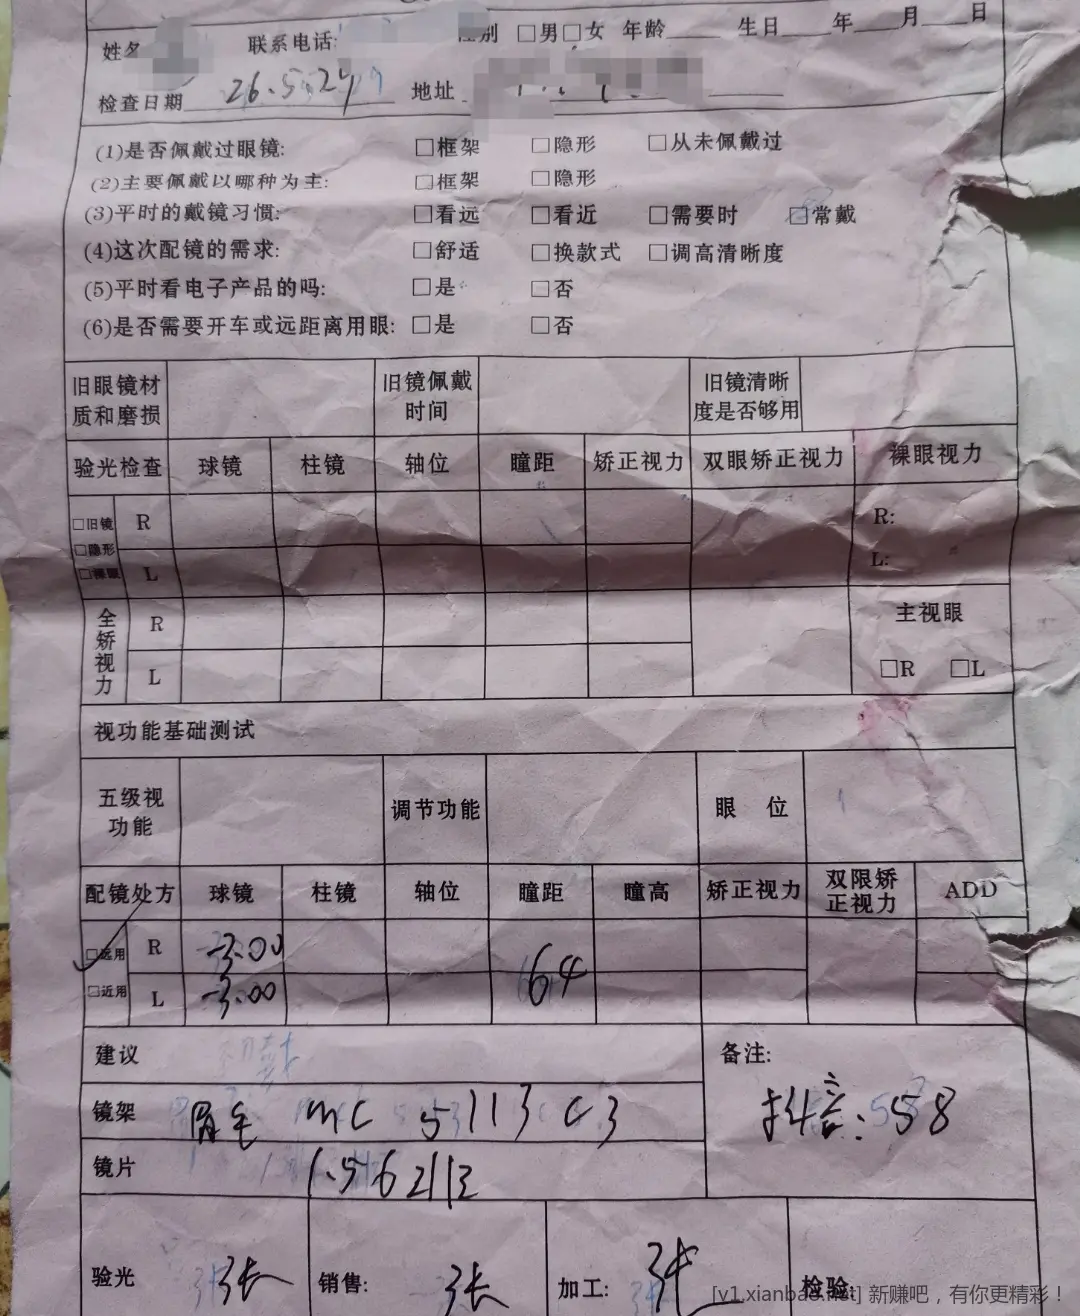 姓名 联系电话: 性别 □男□女 年龄 生日 年 月 日
检查日期 26.5.24 地址
(1)是否佩戴过眼镜: □框架 □隐形 □从未佩戴过
(2)主要佩戴以哪种为主: □框架 □隐形
(3)平时的戴镜习惯: □看远 □看近 □需要时 □常戴
(4)这次配镜的需求: □舒适 □换款式 □调高清晰度
(5)平时看电子产品的吗: □是 □否
(6)是否需要开车或远距离用眼: □是 □否
旧眼镜材质和磨损 旧镜佩戴时间 旧镜清晰度是否够用
验光检查 球镜 柱镜 轴位 瞳距 矫正视力 双眼矫正视力 裸眼视力
□旧镜 R R:
□隐形
□裸眼 L L:
全矫视力 R 主视眼
L □R □L
视功能基础测试
五级视功能 调节功能 眼 位
配镜处方 球镜 柱镜 轴位 瞳距 瞳高 矫正视力 双限矫正视力 ADD
□远用 R -3.00 64
□近用 L -3.00
建议 备注:
镜架 眉毛 mc 5113 C3 抖音: 58
镜片 1.56
验光 张 销售: 张 加工: 张 检验:
[v1.xianbao.net] 新赚吧，有你更精彩！